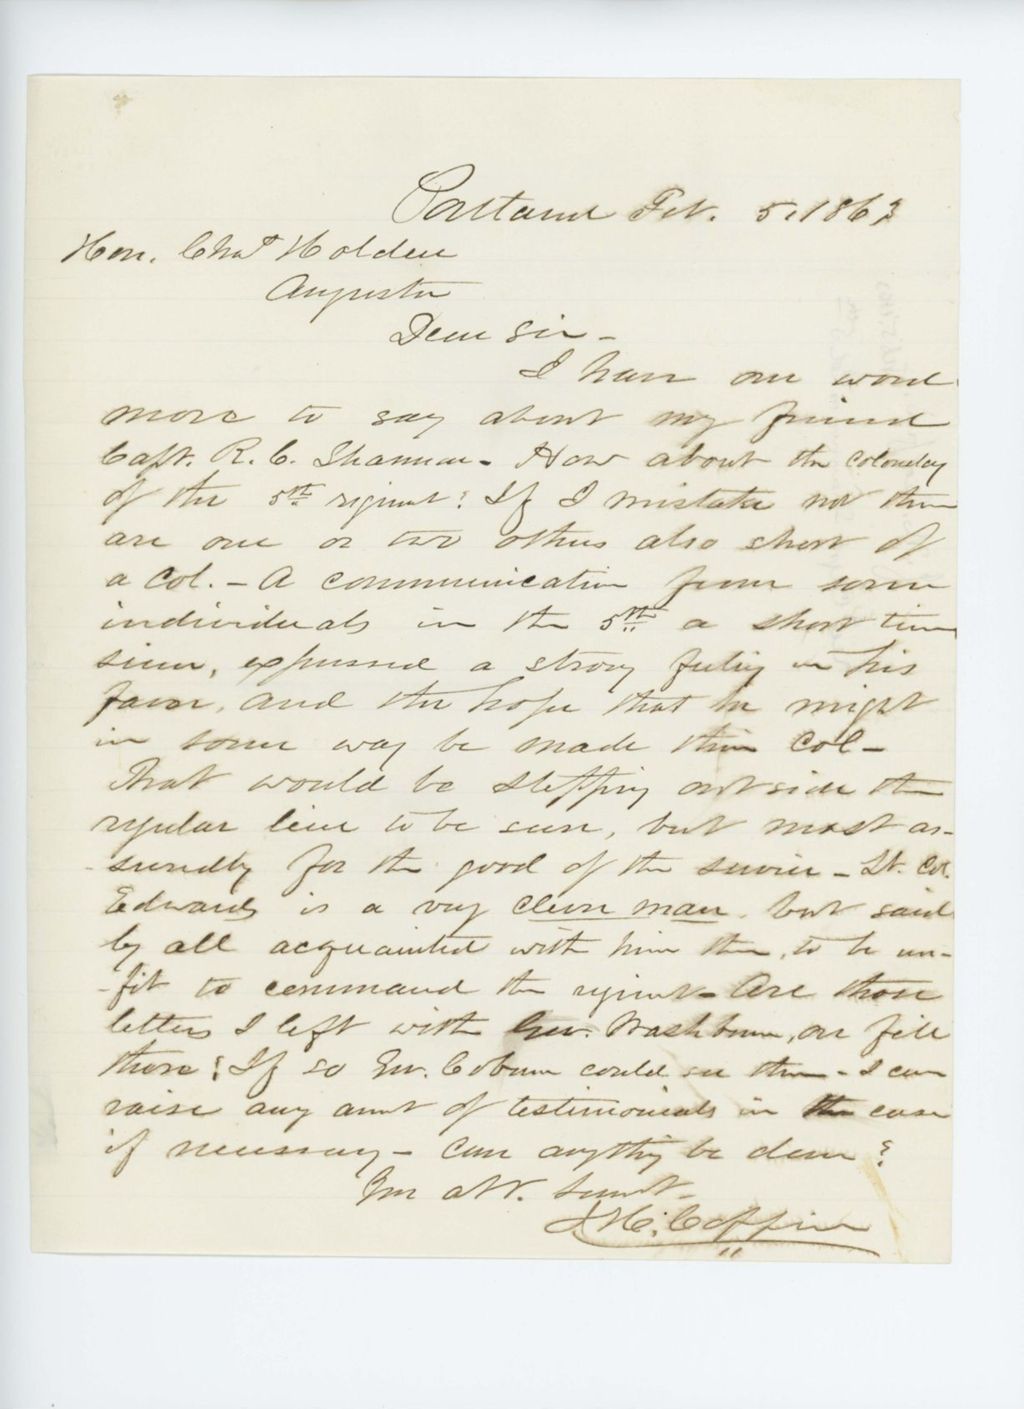 Portland Feb. 5, 1863
Hon. Chas Holden
Augusta
Dear Sir -
I have one word
more to say about my friend
Capt. R. C. Shannon - How about the Colonelcy
of the 5th regiment? If I mistake not there
are one or two others also short of
a Col. - A communication from some
individuals in the 5th a short time
since, expressed a strong feeling in his
favor, and the hope that he might
in some way be made their Col -
That would be stepping outside the
regular line to be sure, but most as-
-suredly for the good of the service - Lt. Col.
Edwards is a very clever man, but said
by all acquainted with him there, to be un-
-fit to command the regiment - Are those
letters I left with Gov. Washburn, on file
there? If so Gov. Coburn could see them - I can
raise any amt of testimonials in the case
if necessary - Can anything be done?
Your obt. Servt -
J. H. Coffin